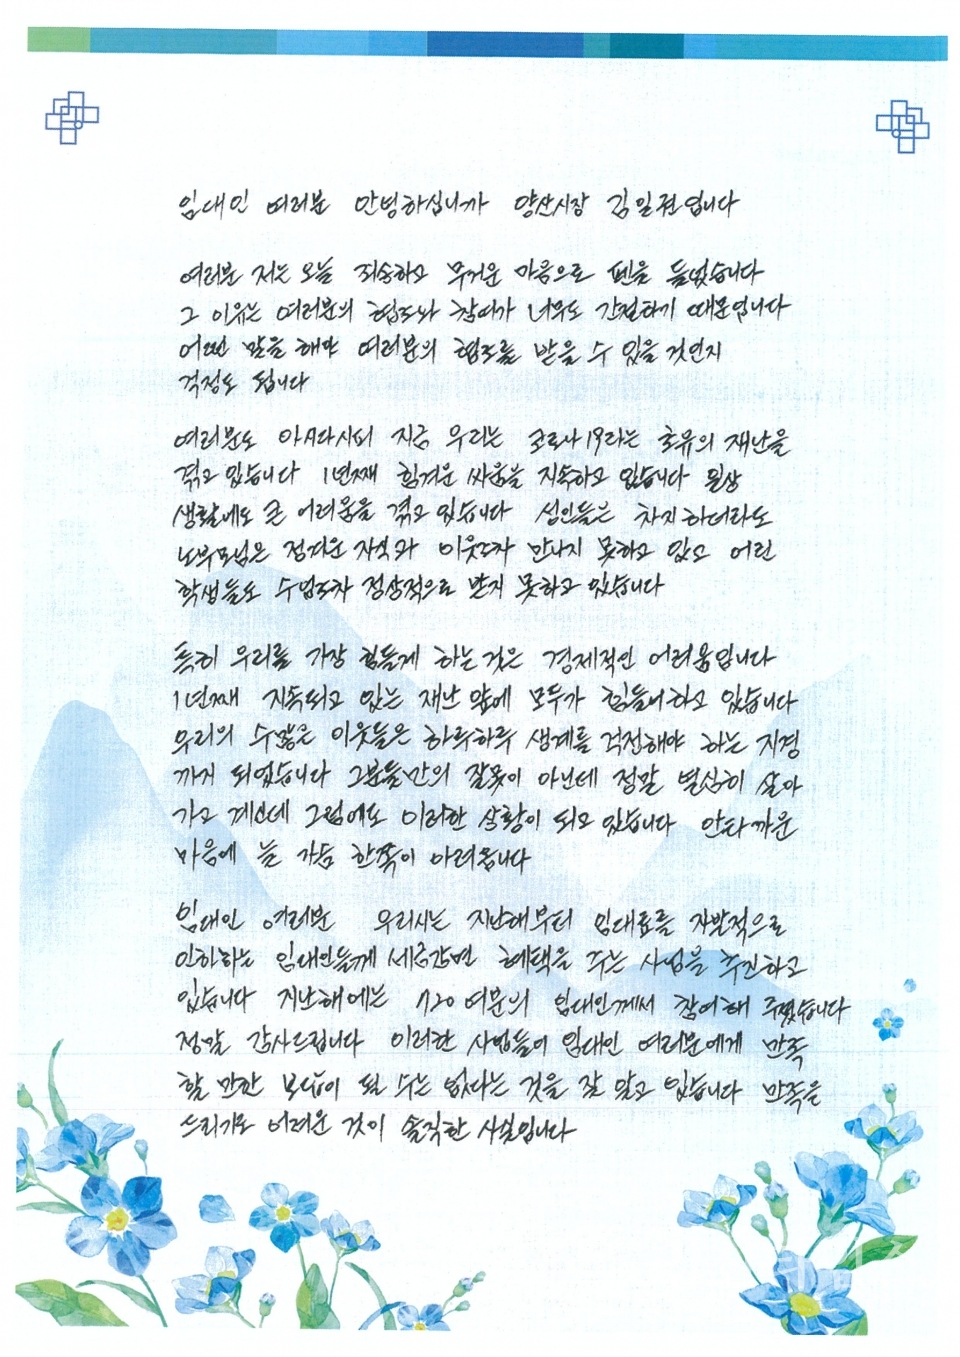 임대인 여러분 안녕하십니까 양산시장 김일권입니다
여러분 저는 오늘 죄송하고 무거운 마음으로 펜을 들었습니다
그 이유는 여러분의 협조와 참여가 너무도 간절하기 때문입니다
어떤 말을 해야 여러분의 협조를 받을 수 있을 것인지
걱정도 됩니다
여러분도 아시다시피 지금 우리는 코로나19라는 초유의 재난을
겪고 있습니다 1년째 힘겨운 싸움을 지속하고 있습니다 일상
생활에도 큰 어려움을 겪고 있습니다 성인들은 차치하더라도
노부모님은 정겨운 자식과 이웃조차 만나지 못하고 있고 어린
학생들도 수업조차 정상적으로 받지 못하고 있습니다
특히 우리를 가장 힘들게 하는 것은 경제적인 어려움입니다
1년째 지속되고 있는 재난 앞에 모두가 힘들어하고 있습니다
우리의 수많은 이웃들은 하루하루 생계를 걱정해야 하는 지경
까지 되었습니다 그분들만의 잘못이 아닌데 정말 열심히 살아
가고 계신데 그럼에도 이러한 상황이 되고 있습니다 안타까운
마음에 늘 가슴 한쪽이 아려옵니다
임대인 여러분 우리시는 지난해부터 임대료를 자발적으로
인하하는 임대인들께 세금감면 혜택을 주는 사업을 추진하고
있습니다 지난해에는 120여분의 임대인께서 참여해 주셨습니다
정말 감사드립니다 이러한 사업들이 임대인 여러분에게 만족
할 만한 보답이 될 수는 없다는 것을 잘 알고 있습니다 만족을
드리기도 어려운 것이 솔직한 사실입니다